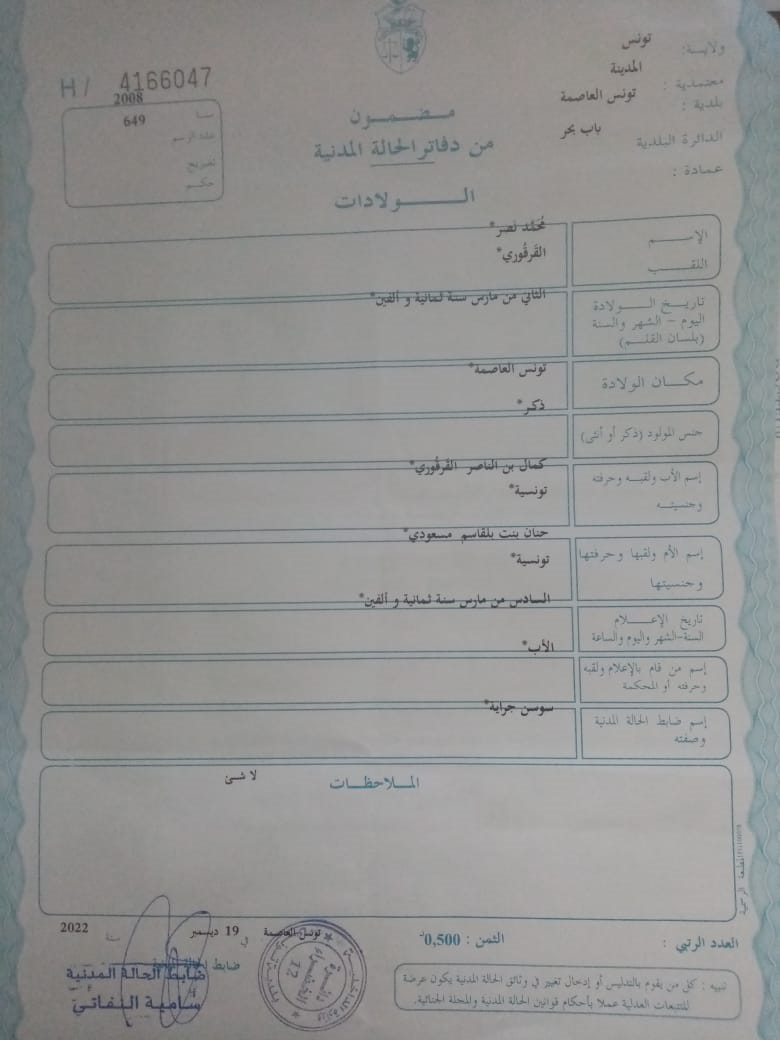 ولايـة: تونس
معتمدية : المدينة
بلدية : تونس العاصمة
الدائرة البلدية باب بحر
عمادة :
H/ 4166047
سنة 2008
عدد الرسم 649
تصريح
حكم
مضمون
من دفاتر الحالة المدنية
الولادات
الإسم مُحَمَّد نصر*
اللقب القَرقُوري*
تاريخ الولادة الثاني من مارس سنة ثمانية و ألفين*
اليوم - الشهر والسنة
(بلسان القلم)
مكان الولادة تونس العاصمة*
جنس المولود (ذكر أو أنثى) ذكر*
إسم الأب ولقبه وحرفته كمال بن الناصر القَرقُوري*
وجنسيته تونسية*
إسم الأم ولقبها وحرفتها حنان بنت بلقاسم مسعودي*
وجنسيتها تونسية*
تاريخ الإعلام السادس من مارس سنة ثمانية و ألفين*
السنة-الشهر واليوم والساعة
إسم من قام بالإعلام ولقبه الأب*
وحرفته أو المحكمة
إسم ضابط الحالة المدنية سوسن جراية*
وصفته
الملاحظات
لا شئ
المطبعة الرسمية
العدد الرتبي :
الثمن : 0,500د
تونس العاصمة في 19 ديسمبر سنة 2022
ضابط الحالة المدنية
ضابط الحالة المدنية
سامية النفاتي
12
تنبيه : كل من يقوم بالتدليس أو إدخال تغيير في وثائق الحالة المدنية يكون عرضة
للتتبعات العدلية عملا بأحكام قوانين الحالة المدنية والمجلة الجنائية.